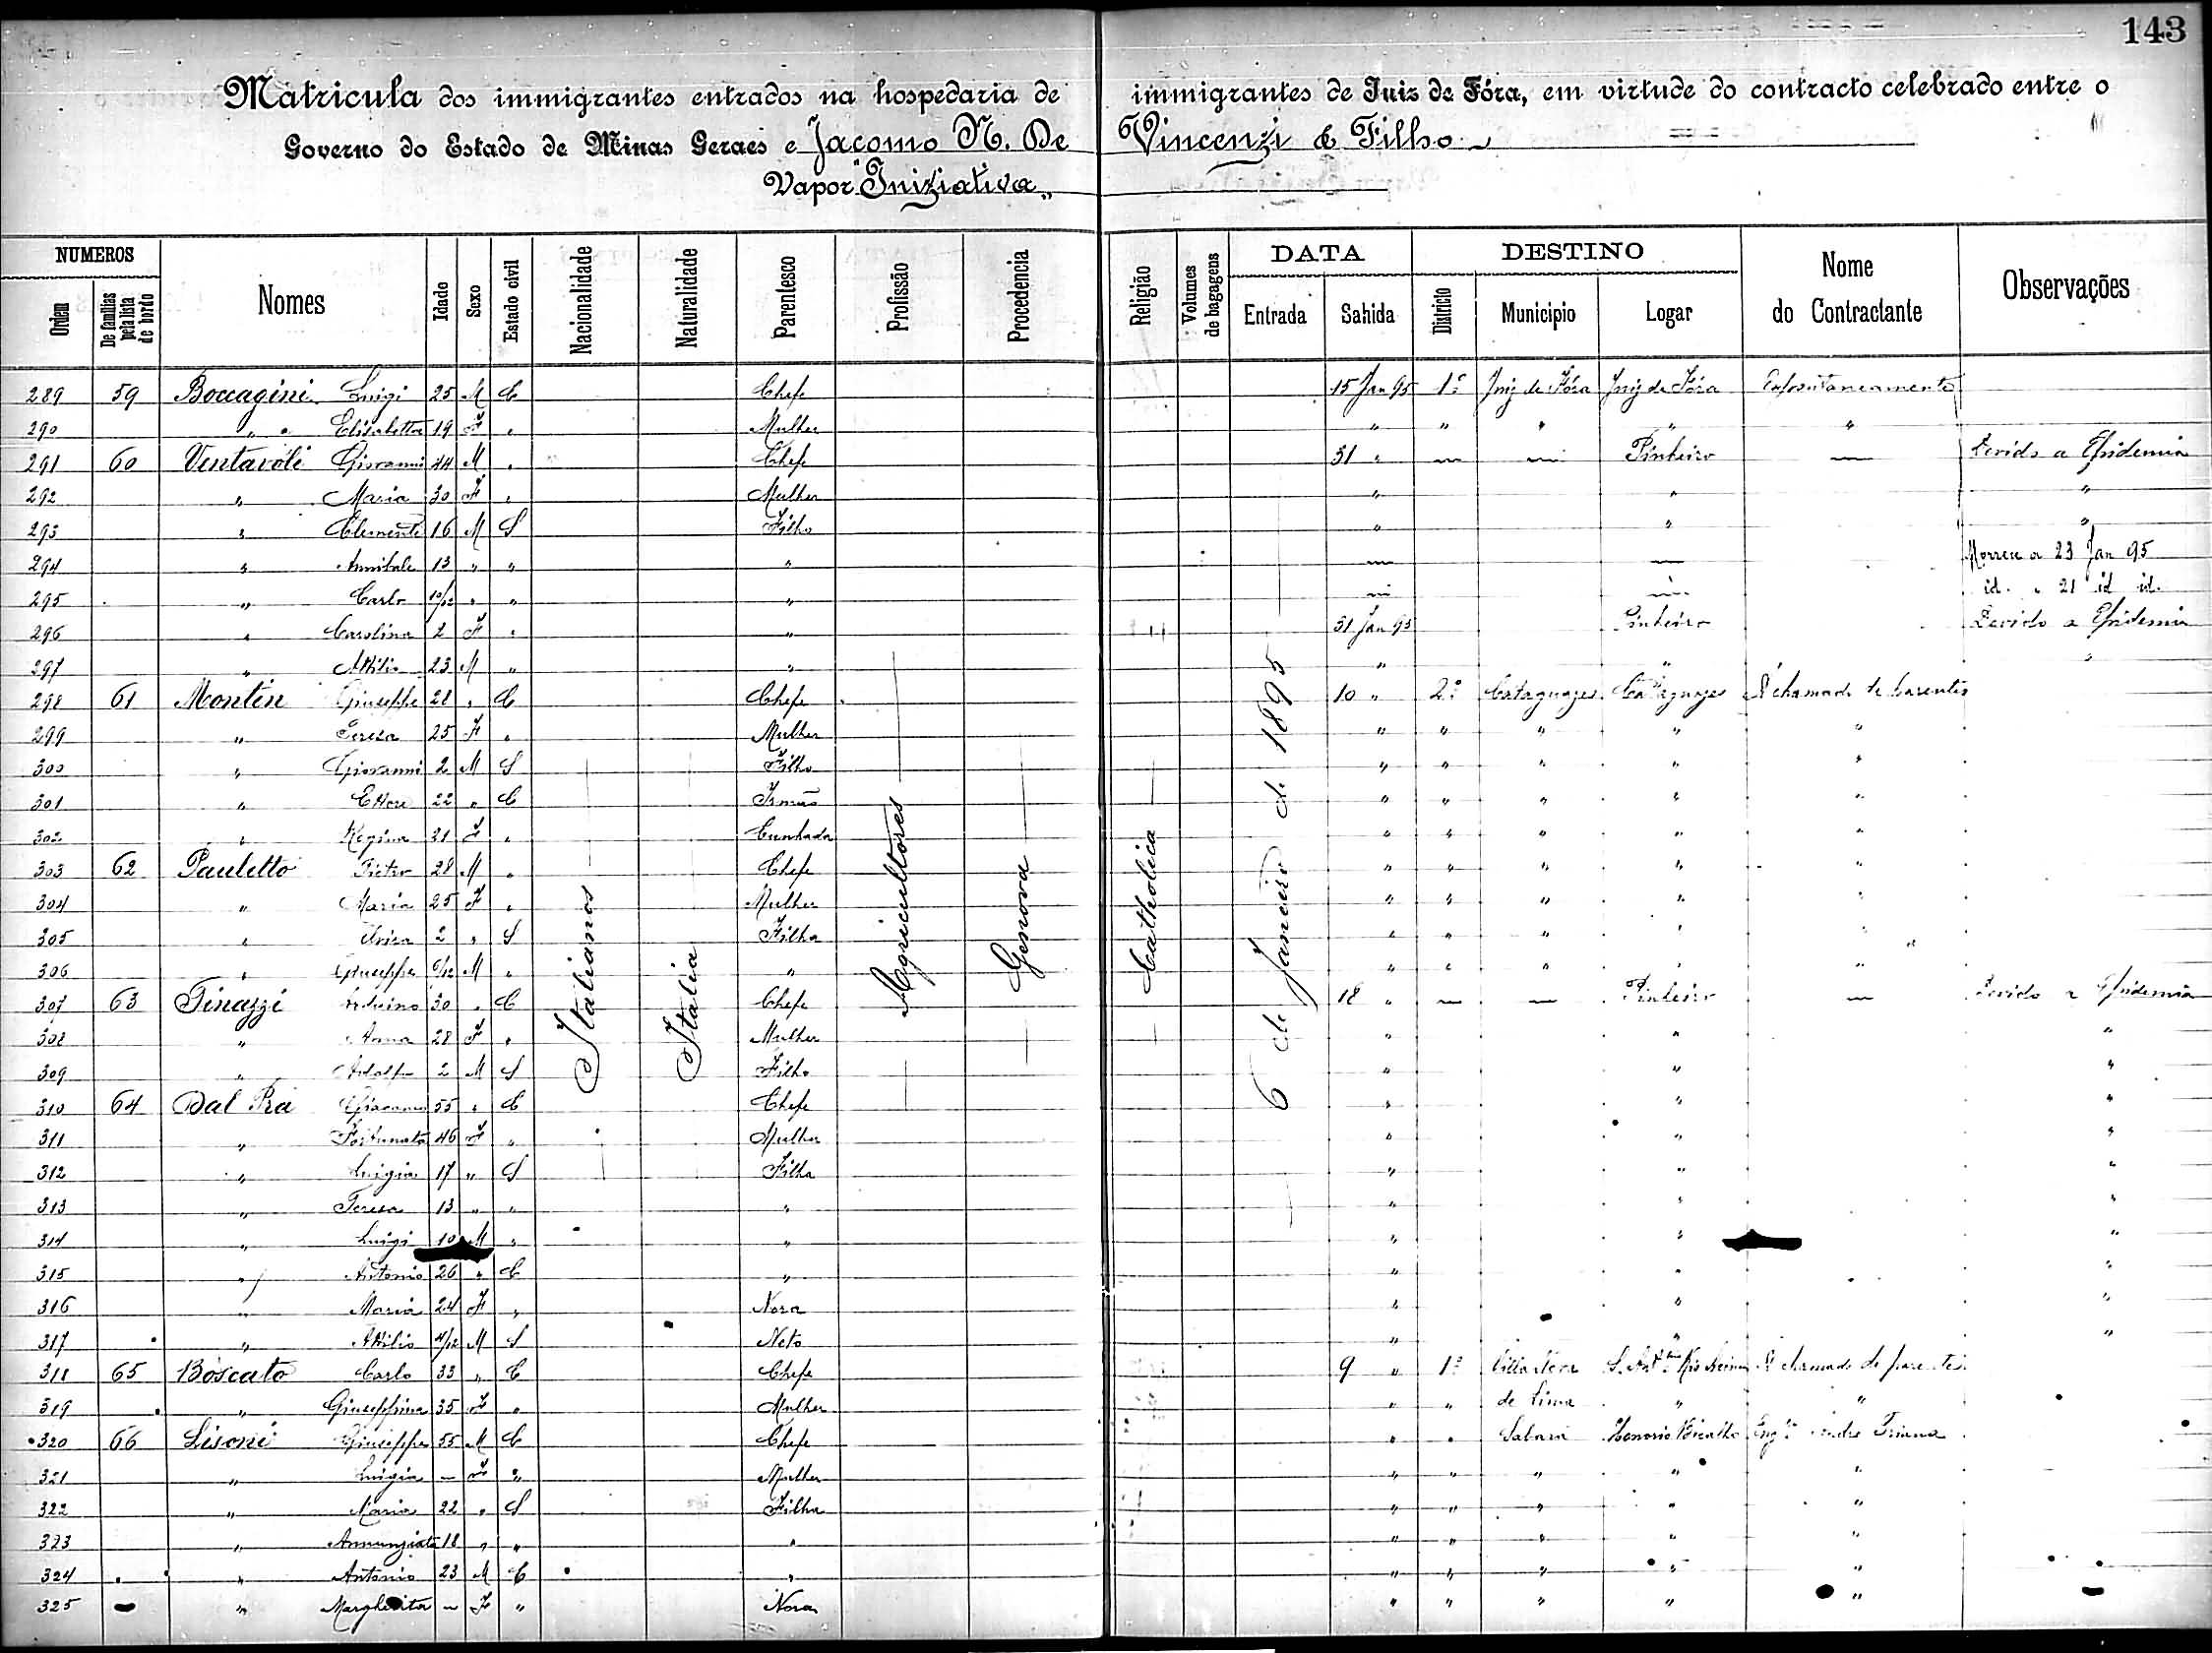 143
Matricula dos immigrantes entrados na hospedaria de immigrantes de Juiz de Fóra, em virtude do contracto celebrado entre o
Governo do Estado de Minas Geraes e Jacomo N. De Vincenzi & Filho
Vapor "Iniziativa"
NUMEROS DATA DESTINO
Ordem De familias pela lista de bordo Nomes Idade Sexo Estado civil Nacionalidade Naturalidade Parentesco Profissão Procedencia Religião Volumes de bagagens Entrada Sahida Districto Municipio Logar Nome do Contractante Observações
Italianos
Italia
Agricultores
Genova
Catholica
6 de Janeiro de 1895
289 59 Boccagini Luigi 25 M C Chefe 15 Jan 95 1º Juiz de Fóra Juiz de Fóra Espontaneamente
290 " " Elisabetta 19 F " Mulher " " " " "
291 60 Ventavoli Giovanni 44 M " Chefe 31 " — — Pinheiro — Devido a Epidemia
292 " Maria 30 F " Mulher " " "
293 " Clemente 16 M S Filho " " "
294 " Annibale 13 " " " — — Morreu a 23 Jan 95
295 " Carlo 10/12 " " " — — id. " 21 id id.
296 " Carolina 2 F " " 31 Jan 95 Pinheiro Devido a Epidemia
297 " Attilio 23 M " " " " "
298 61 Montin Giuseppe 28 " C Chefe 10 " 2º Cataguazes Cataguazes A chamado de parentes
299 " Teresa 25 F " Mulher " " " " "
300 " Giovanni 2 M S Filho " " " " "
301 " Ettore 22 " C Irmão " " " " "
302 " Regina 21 F " Cunhada " " " " "
303 62 Pauletto Pietro 28 M " Chefe " " " " "
304 " Maria 25 F " Mulher " " " " "
305 " 2 " S Filha " " " " "
306 " Giuseppe 6/12 M " " " " " " "
307 63 Tinazzi Arduino 30 " C Chefe 18 " — — Pinheiro — Devido a Epidemia
308 " Anna 28 F " Mulher " " "
309 " Adolfo 2 M S Filho " " "
310 64 Dal Prà Giacomo 55 " C Chefe " " "
311 " Fortunata 46 F " Mulher " " "
312 " Luigia 17 " S Filha " " "
313 " Teresa 13 " " " " " "
314 " Luigi 10 M " " " " "
315 " Antonio 26 " C " " " "
316 " Maria 24 F " Nora " " "
317 " Attilio 4/12 M S Neto " " "
318 65 Boscato Carlo 33 " C Chefe 9 " 1º Villa Nova A chamado de parentes
319 " Giuseppina 35 F " Mulher " " de Lima " "
320 66 Lisoni Giuseppe 55 M C Chefe " " Sabará Honorio Bicalho Engº Andre Triana
321 " Luigia — F " Mulher " " " " "
322 " Maria 22 " S Filha " " " " "
323 " Annunziata 18 " " " " " " " "
324 " Antonio 23 M C " " " " " "
325 " Margherita — F " Nora " " " " "